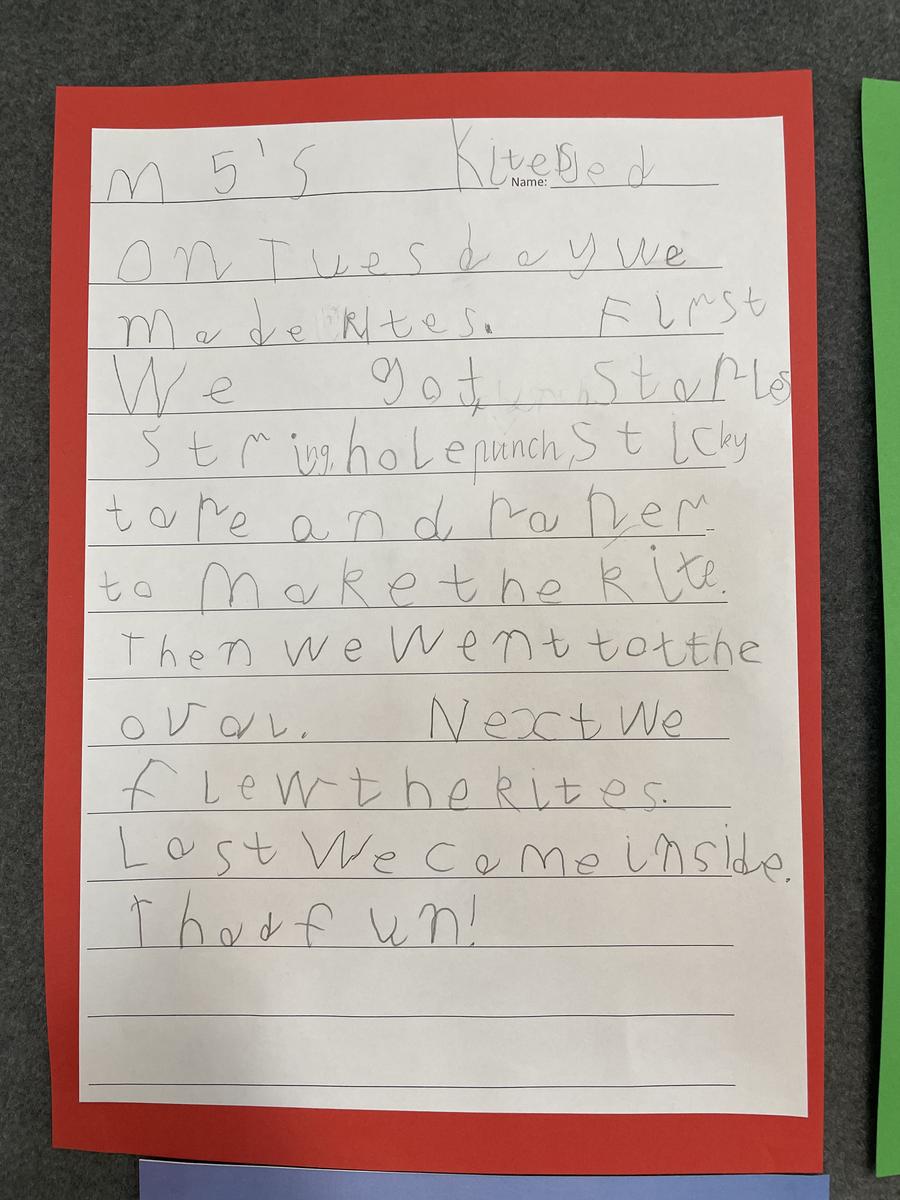 M 5's Kites Jed
Name:
On Tuesday we
made kites. First
We got, staples
string, hole punch, sticky
tape and paper
to make the kite.
Then we went totthe
oval. Next we
flew the kites.
Last We came inside.
I had fun!